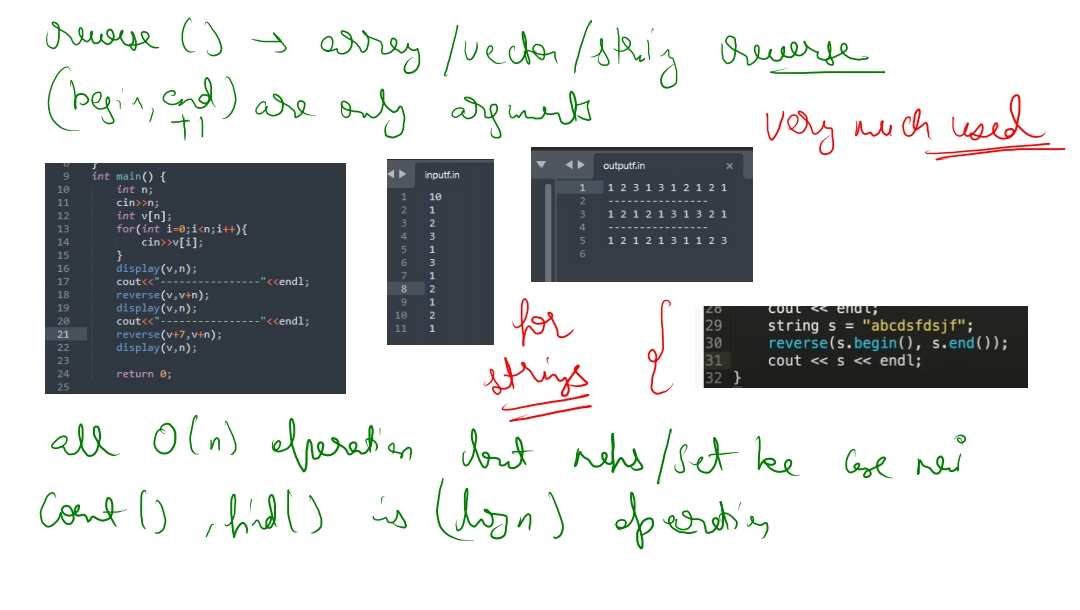 reverse () → array/vector/string reverse
(begin, end) are only arguments
+1
very much used
8 }
9 int main() {
10 int n;
11 cin>>n;
12 int v[n];
13 for(int i=0;i<n;i++){
14 cin>>v[i];
15 }
16 display(v,n);
17 cout<<"----------------"<<endl;
18 reverse(v,v+n);
19 display(v,n);
20 cout<<"----------------"<<endl;
21 reverse(v+7,v+n);
22 display(v,n);
23
24 return 0;
25
inputf.in
1 10
2 1
3 2
4 3
5 1
6 3
7 1
8 2
9 1
10 2
11 1
outputf.in ×
1 1 2 3 1 3 1 2 1 2 1
2 ----------------
3 1 2 1 2 1 3 1 3 2 1
4 ----------------
5 1 2 1 2 1 3 1 1 2 3
6
for
strings
28 cout << endl;
29 string s = "abcdsfdsjf";
30 reverse(s.begin(), s.end());
31 cout << s << endl;
32 }
all O(n) operation but maps/set ke case mei
count(), find() is (log n) operation